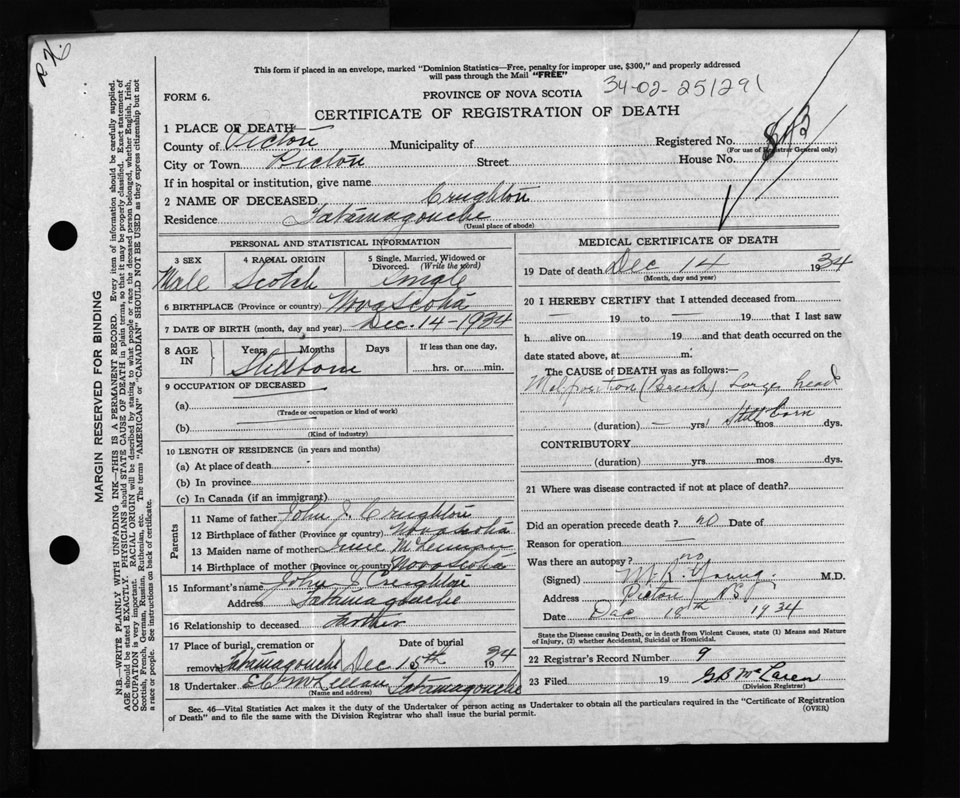 P.X.
This form if placed in an envelope, marked "Dominion Statistics—Free, penalty for improper use, $300," and properly addressed
will pass through the Mail "FREE"
34-02-251291
FORM 6.
PROVINCE OF NOVA SCOTIA
CERTIFICATE OF REGISTRATION OF DEATH
1 PLACE OF DEATH
County of Pictou Municipality of Registered No.
(For use of Registrar General only)
City or Town Pictou Street House No.
If in hospital or institution, give name
2 NAME OF DECEASED Creighton
Residence Tatamagouche
(Usual place of abode)
PERSONAL AND STATISTICAL INFORMATION
3 SEX 4 RACIAL ORIGIN 5 Single, Married, Widowed or Divorced. (Write the word)
Male Scotch Single
6 BIRTHPLACE (Province or country) Nova Scotia
7 DATE OF BIRTH (month, day and year) Dec. 14-1934
8 AGE IN Years Months Days If less than one day,
Stillborn hrs. or min.
9 OCCUPATION OF DECEASED
(a)
(Trade or occupation or kind of work)
(b)
(Kind of industry)
10 LENGTH OF RESIDENCE (in years and months)
(a) At place of death
(b) In province
(c) In Canada (if an immigrant)
Parents
11 Name of father John J. Creighton
12 Birthplace of father (Province or country) Nova Scotia
13 Maiden name of mother
14 Birthplace of mother (Province or country) Nova Scotia
15 Informant's name John J Creighton
Address Tatamagouche
16 Relationship to deceased Father
17 Place of burial, cremation or Date of burial
removal Tatamagouche Dec 15th 1934
18 Undertaker Tatamagouche
(Name and address)
MEDICAL CERTIFICATE OF DEATH
19 Date of death Dec 14 1934
(Month, day and year)
20 I HEREBY CERTIFY that I attended deceased from
— 19 to — 19 that I last saw
h alive on 19 and that death occurred on the
date stated above, at m.
The CAUSE of DEATH was as follows:—
Malposition (Breech) Large head
Still born
(duration) — yrs mos dys.
CONTRIBUTORY
(duration) yrs mos dys.
21 Where was disease contracted if not at place of death?
Did an operation precede death? no Date of
Reason for operation —
Was there an autopsy? no
(Signed) M.R. Young M.D.
Address Pictou NS
Date Dec 18th 1934
State the Disease causing Death, or in death from Violent Causes, state (1) Means and Nature
of Injury, (2) whether Accidental, Suicidal or Homicidal.
22 Registrar's Record Number 9
23 Filed 19 G B McLaren
(Division Registrar)
Sec. 46—Vital Statistics Act makes it the duty of the Undertaker or person acting as Undertaker to obtain all the particulars required in the "Certificate of Registration
of Death" and to file the same with the Division Registrar who shall issue the burial permit.
(OVER)
MARGIN RESERVED FOR BINDING
N.B.—WRITE PLAINLY WITH UNFADING INK—THIS IS A PERMANENT RECORD. Every item of information should be carefully supplied.
AGE should be stated EXACTLY. PHYSICIANS should STATE CAUSE OF DEATH in plain terms, so that it may be properly classified. Exact statement of
OCCUPATION is very important. RACIAL ORIGIN will be described by stating to what people or race the deceased person belonged, whether English, Irish,
Scottish, French, German, Russian, Ruthenian, etc. The terms "AMERICAN" or "CANADIAN" SHOULD NOT BE USED as they express citizenship but not
a race or people. See instructions on back of certificate.